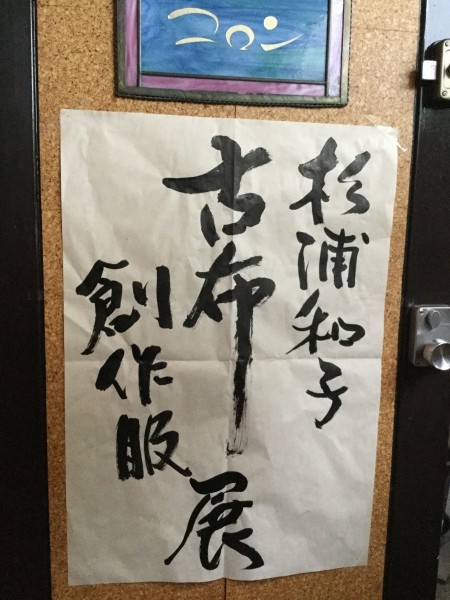 コロン
杉浦和子
古布
創作服
展